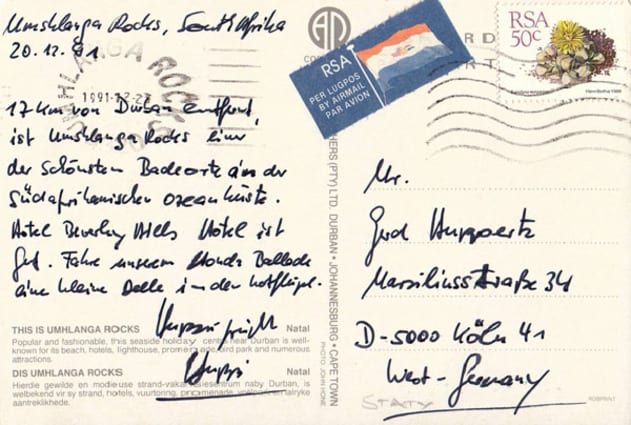 Umshlanga Rocks, South Afrika
20.12.91
UMHLANGA ROCKS
1991-12-2
17 km von Durban entfernt,
ist Umshlanga Rocks einer
der schönsten Badeorte an der
Südafrikanischen Ozeanküste.
Hotel Beverley Hills Hotel ist
gut. Fahre unserem Honda Ballade
eine kleine Delle in den Kotflügel.
THIS IS UMHLANGA ROCKS Natal
Popular and fashionable, this seaside holiday centre near Durban is well-
known for its beach, hotels, lighthouse, promenade, bird park and numerous
attractions.
DIS UMHLANGA ROCKS Natal
Hierdie gewilde en modieuse strand-vakansiesentrum naby Durban, is
welbekend vir sy strand, hotels, vuurtoring, promenade, voëlpark en talryke
aantreklikhede.
RSA
PER LUGPOS
BY AIRMAIL
PAR AVION
RSA
50c
(PTY) LTD. DURBAN • JOHANNESBURG • CAPE TOWN
PHOTO: JOHN HONE
Mr.
Gerd Huppertz
Marsiliusstraße 34
D-5000 Köln 41
West-Germany
STATY